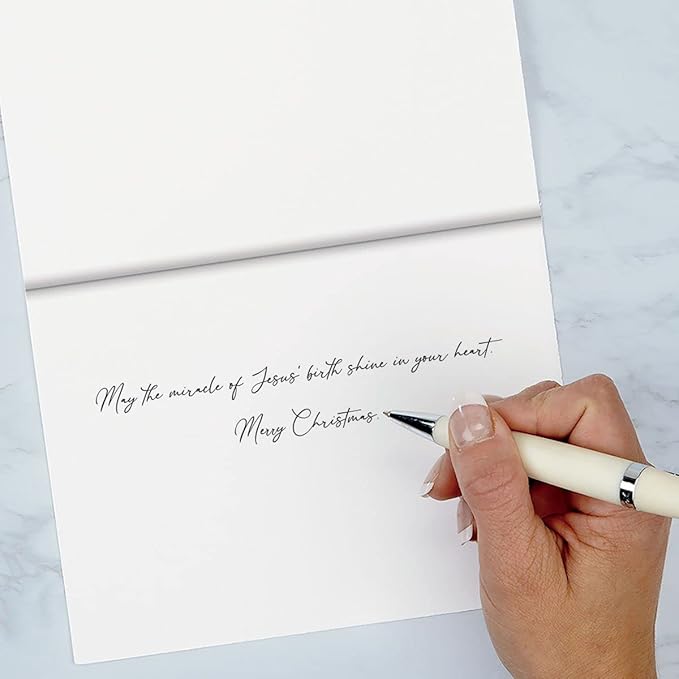 May the miracle of Jesus' birth shine in your heart.
Merry Christmas.